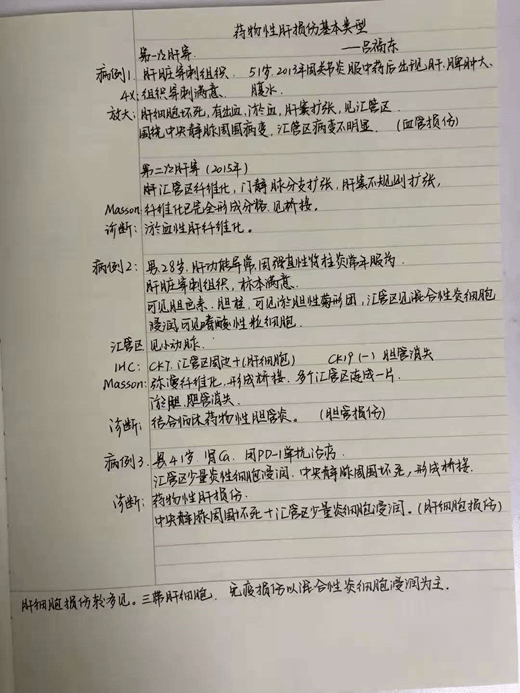 药物性肝损伤基本类型
——吕福东
第一次肝穿
病例1. 肝脏穿刺组织. 51岁. 2013年因关节炎服中药后出现肝.脾肿大、
4x: 组织穿刺满意. 腹水.
放大: 肝细胞坏死,有出血,淤血,肝窦扩张,见汇管区.
围绕中央静脉周围病变.汇管区病变不明显. (血管损伤)
第二次肝穿(2015年)
肝汇管区纤维化,门静脉分支扩张,肝窦不规则扩张,
Masson: 纤维化已完全形成分格.见桥接.
诊断: 淤血性肝纤维化。
病例2: 男.28岁.肝功能异常,因强直性脊柱炎常年服药.
肝脏穿刺组织,标本满意.
可见胆色素.胆栓,可见淤胆性菊形团,汇管区见混合性炎细胞
浸润,可见嗜酸性粒细胞.
汇管区 见小动脉.
IHC: CK7.汇管区周边+(肝细胞) CK19(-) 胆管消失
Masson: 弥漫纤维化,形成桥接.多个汇管区连成一片.
淤胆.胆管消失.
诊断: 结合临床药物性胆管炎。 (胆管损伤)
病例3. 男41岁.肾Ca. 用PD-1单抗治疗.
汇管区少量炎性细胞浸润.中央静脉周围坏死,形成桥接.
诊断: 药物性肝损伤.
中央静脉周围坏死+汇管区少量炎细胞浸润。(肝细胞损伤)
肝细胞损伤较多见。三带肝细胞. 免疫损伤以混合性炎细胞浸润为主.